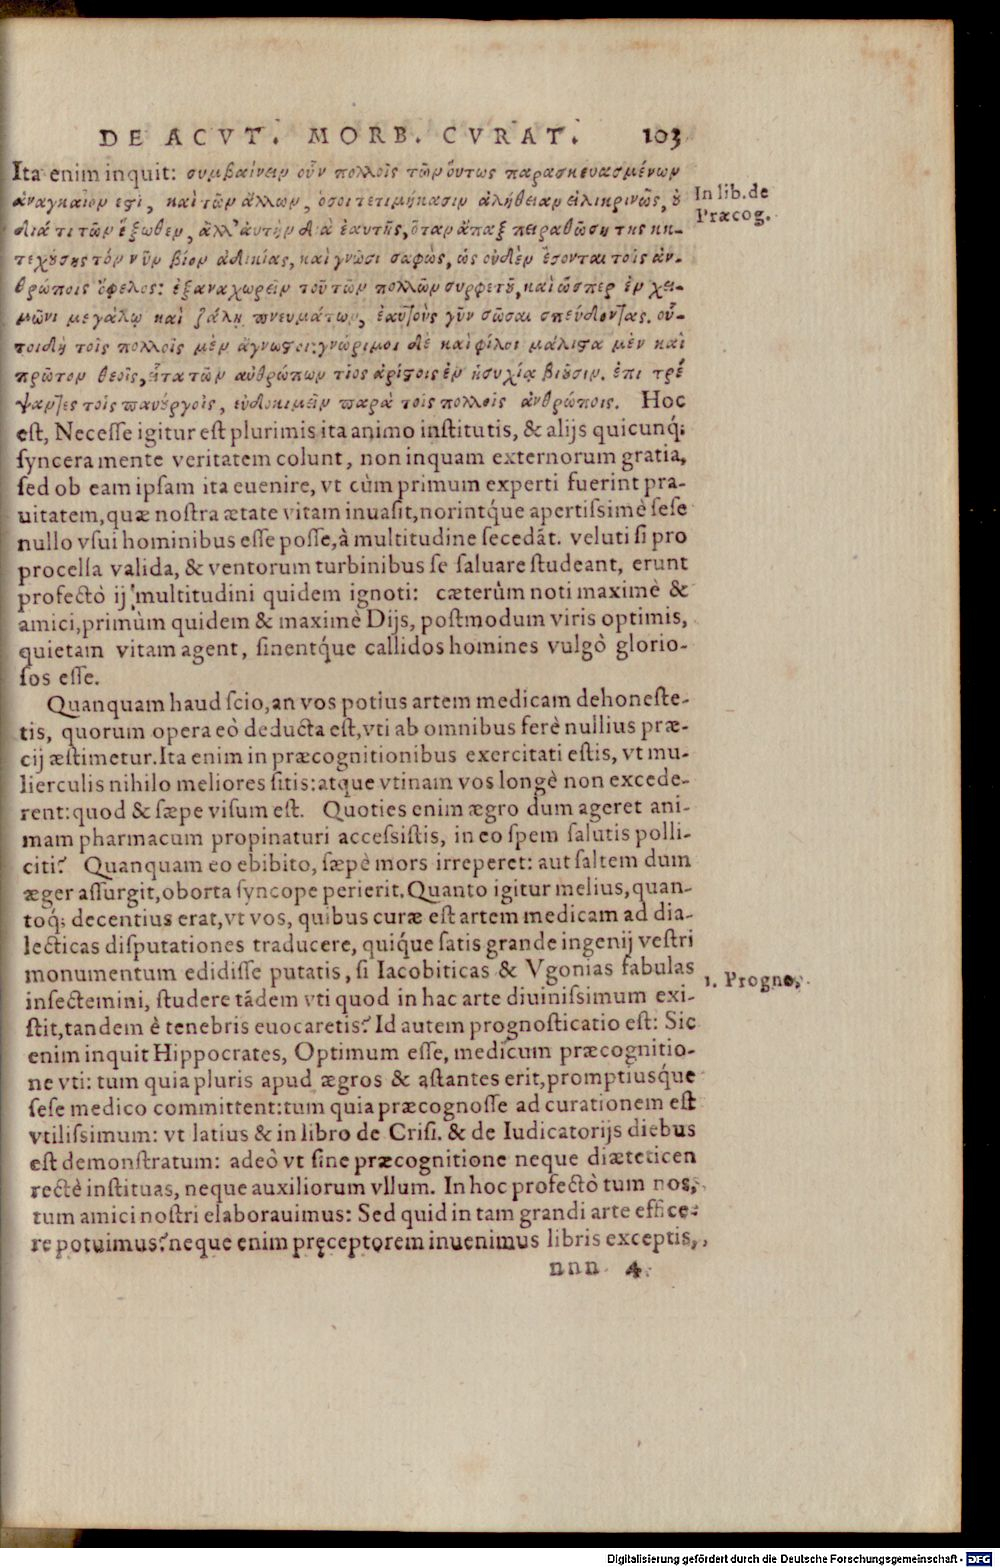 DE ACVT. MORB. CVRAT. 103
Ita enim inquit: συμβαίνειν οὖν πολλοῖς τῶν οὕτως παρασκευασμένων
In lib. de
Præcog.
ἀναγκαῖον εϛὶ, καὶ τῶν ἄλλων, ὅσοι τετιμήκασιν ἀλήθειαν εἰλικρινῶς, ȣ
διά τι τῶν ἔξωθεν, ἀλλ' ἀυτὴν διὰ ἑαυτῆς, ὅταν ἅπαξ πειραθῶσι της κα-
τεχȣσης τόν νῦν βίον ἀδικίας, καὶ γνῶσι σαφῶς, ὡς οὐδὲν ἔσονται τοῖς ἀν-
θρώποις ὄφελος: ἐξαναχωρεῖν τοῦ τῶν πολλῶν συρφετȣ, καὶ ὥσπερ ἐν χει-
μῶνι μεγάλῳ καὶ ζάλῃ πνευμάτων, ἑαυτοὺς γῦν σῶσαι σπεύδοντας. οὗ-
τοι δὴ τοῖς πολλοῖς μὲν ἄγνωϛοι: γνώριμοι δὲ καὶ φίλοι μάλιϛα μὲν καὶ
πρῶτον θεοῖς, εἶτα τῶν αὐθρώπων τίος ἀρίϛοις ἐν ἡσυχίᾳ βιȣσιν. ἐπι τρέ
ψαντες τοῖς πανȣργοις, εὐδοκιμεῖν παρὰ τοῖς πολλοῖς ἀνθρώποις. Hoc
est, Necesse igitur est plurimis ita animo institutis, & alijs quicunq;
syncera mente veritatem colunt, non inquam externorum gratia,
sed ob eam ipsam ita euenire, vt cùm primum experti fuerint pra-
uitatem, quæ nostra ætate vitam inuasit, norintq́ue apertissimè sese
nullo vsui hominibus esse posse, à multitudine secedãt. veluti si pro
procella valida, & ventorum turbinibus se saluare studeant, erunt
profectò ij multitudini quidem ignoti: cæterùm noti maximè &
amici, primùm quidem & maximè Dijs, postmodum viris optimis,
quietam vitam agent, sinentq́ue callidos homines vulgò glorio-
sos esse.
Quanquam haud scio, an vos potius artem medicam dehoneste-
tis, quorum opera eò deducta est, vti ab omnibus ferè nullius præ-
cij æstimetur. Ita enim in præcognitionibus exercitati estis, vt mu-
lierculis nihilo meliores sitis: atque vtinam vos longè non excede-
rent: quod & sæpe visum est. Quoties enim ægro dum ageret ani-
mam pharmacum propinaturi accessistis, in eo spem salutis polli-
citi? Quanquam eo ebibito, sæpè mors irreperet: aut saltem dum
æger assurgit, oborta syncope perierit. Quanto igitur melius, quan-
toq́; decentius erat, vt vos, quibus curæ est artem medicam ad dia-
lecticas disputationes traducere, quiq́ue satis grande ingenij vestri
monumentum edidisse putatis, si Iacobiticas & Vgonias fabulas
1. Progno.
insectemini, studere tãdem vti quod in hac arte diuinissimum exi-
stit, tandem è tenebris euocaretis? Id autem prognosticatio est: Sic
enim inquit Hippocrates, Optimum esse, medicum præcognitio-
ne vti: tum quia pluris apud ægros & astantes erit, promptiusq́ue
sese medico committent: tum quia præcognosse ad curationem est
vtilissimum: vt latius & in libro de Crisi. & de Iudicatorijs diebus
est demonstratum: adeò vt sine præcognitione neque diæteticen
rectè instituas, neque auxiliorum vllum. In hoc profectò tum nos,
tum amici nostri elaborauimus: Sed quid in tam grandi arte effice-
re potuimus? neque enim pręceptorem inuenimus libris exceptis,
nnn 4.
Digitalisierung gefördert durch die Deutsche Forschungsgemeinschaft - DFG